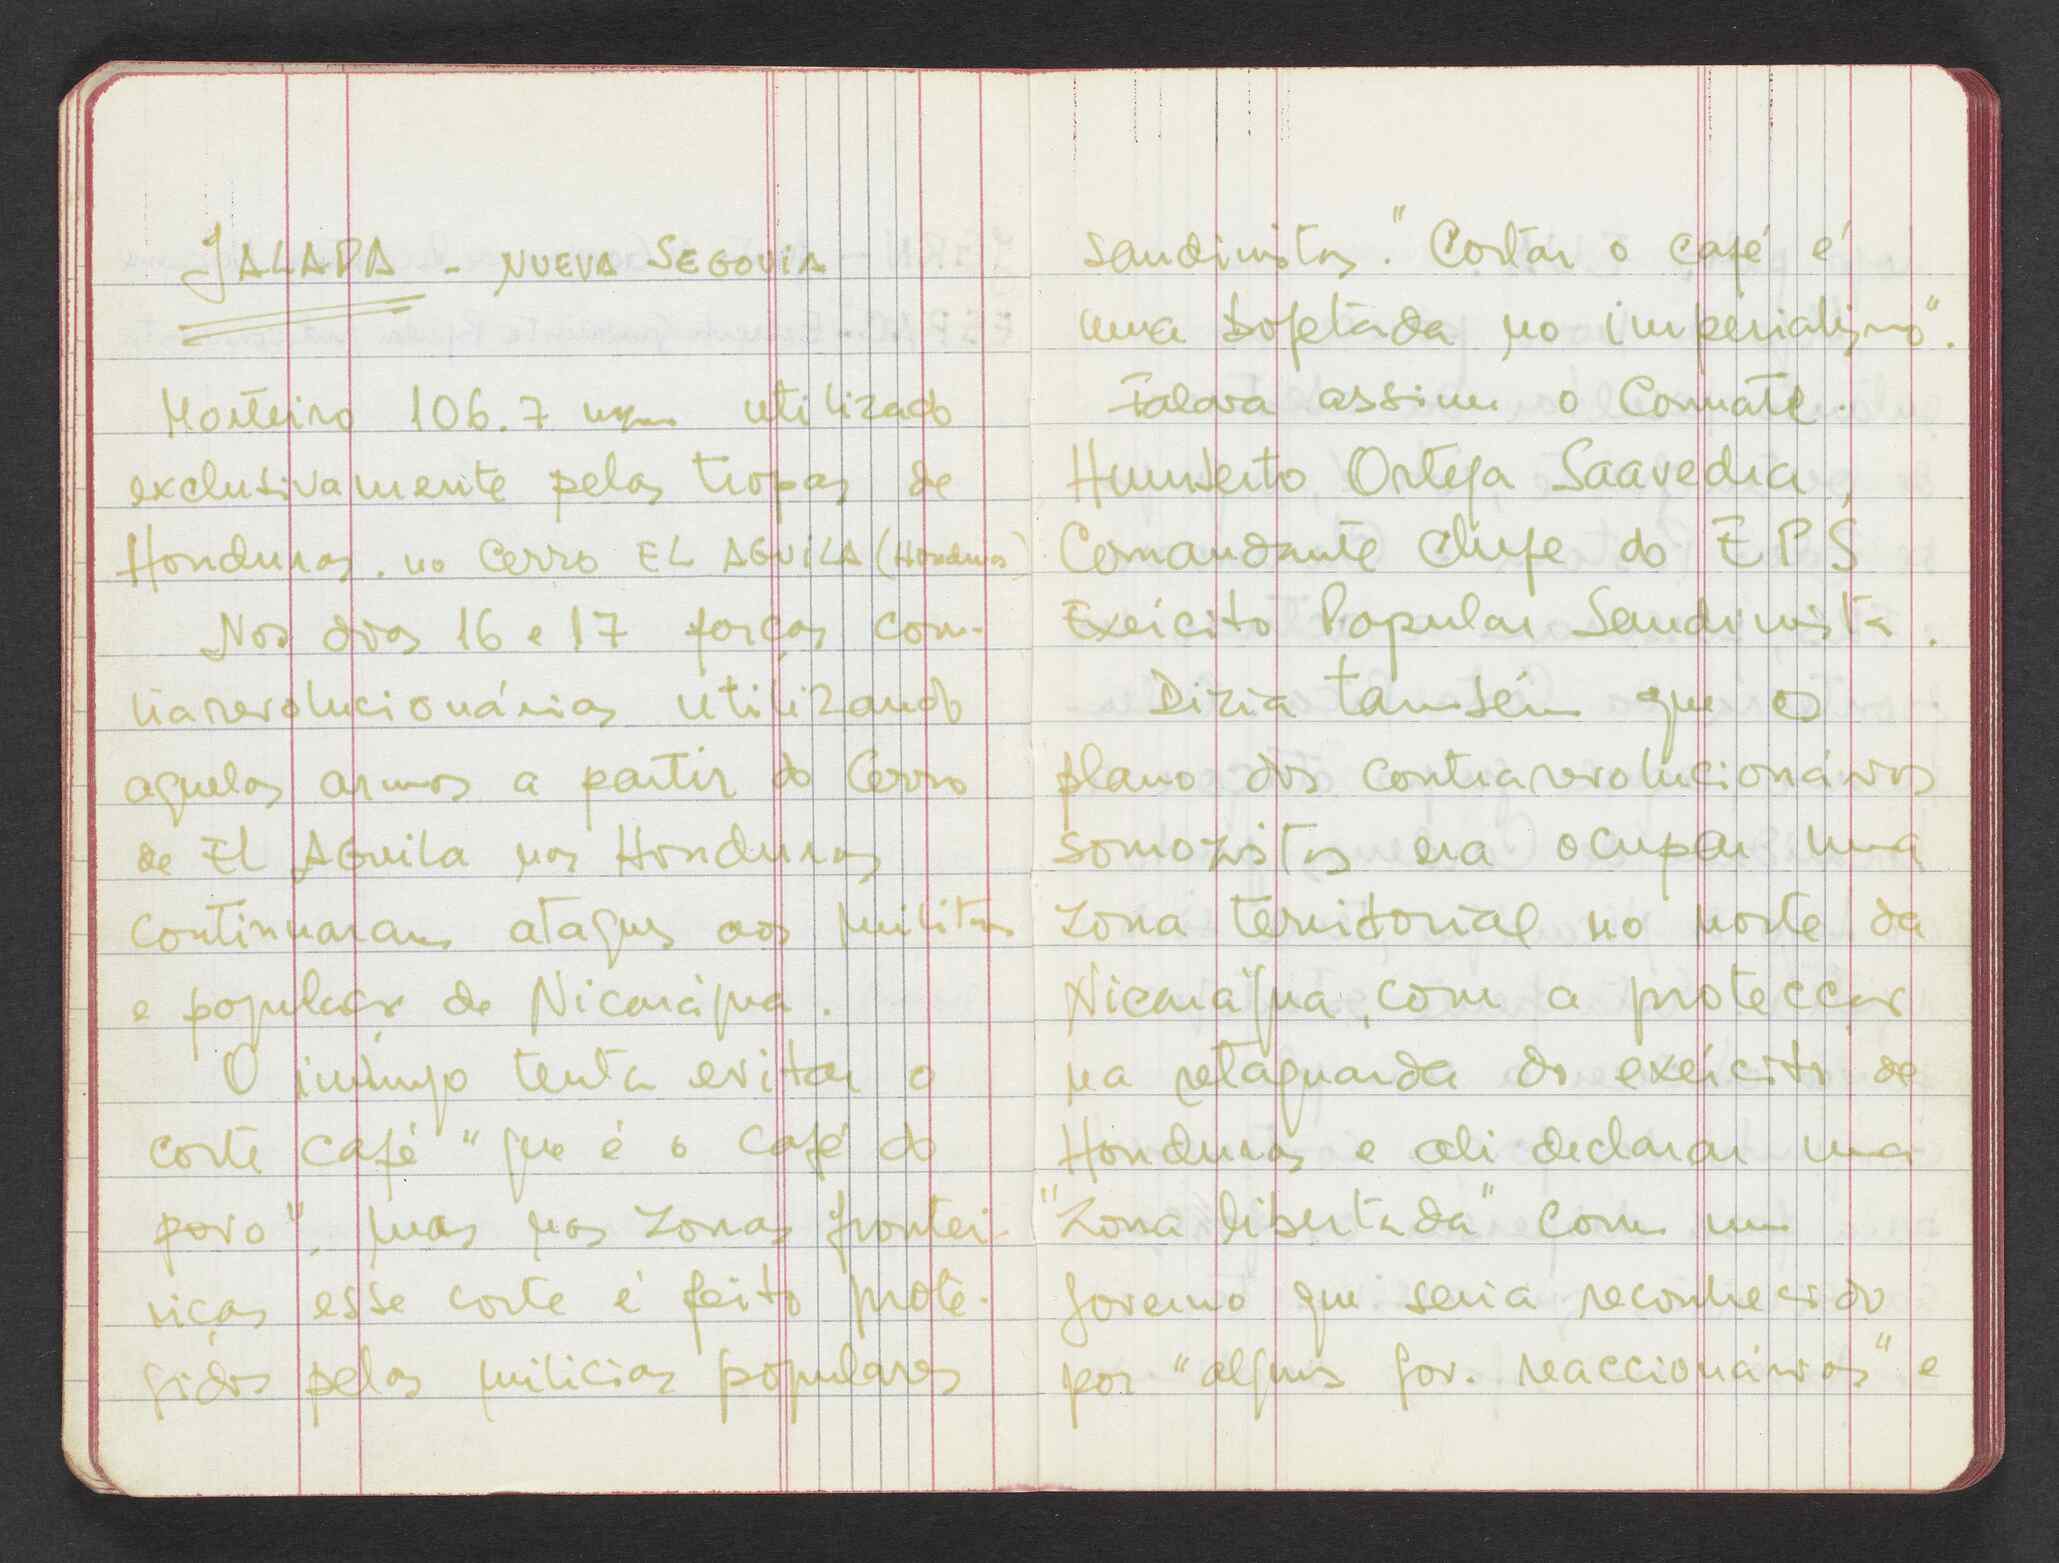 JALAPA - NUEVA SEGOVIA
Morteiro 106.7 mm utilizado
exclusivamente pelas tropas de
Honduras. no Cerro EL AGUILA (Honduras)
Nos dias 16 e 17 forças con-
trarevolucionárias utilizando
aquelas armas a partir do Cerro
de El Aguila nas Honduras
continuaram ataques aos militas
e populaçox de Nicarágua.
O inimigo tenta evitar o
corte café "que é o café do
povo", mas nas zonas frontei-
riças esse corte é feito prote-
gidos pelas milicias populares
sandinistas. "Cortar o café é
uma bofetada no imperialismo".
Falava assim o Comate.
Humberto Ortega Saavedra,
Comandante Chefe do E P S
Exército Popular Sandinista.
Dizia também que o
plano dos contrarevolucionários
somozistas era ocupar uma
zona territorial no norte da
Nicarágua, com a protecçox
na retaguarda do exército de
Honduras e ali declarar uma
"Zona libertada" com um
governo que seria reconhecido
por "alguns gov. reaccionários" e